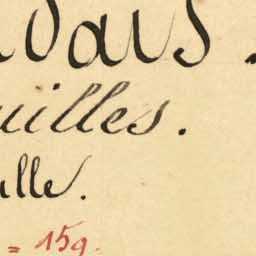 dais.
uilles.
ulle.
= 159.